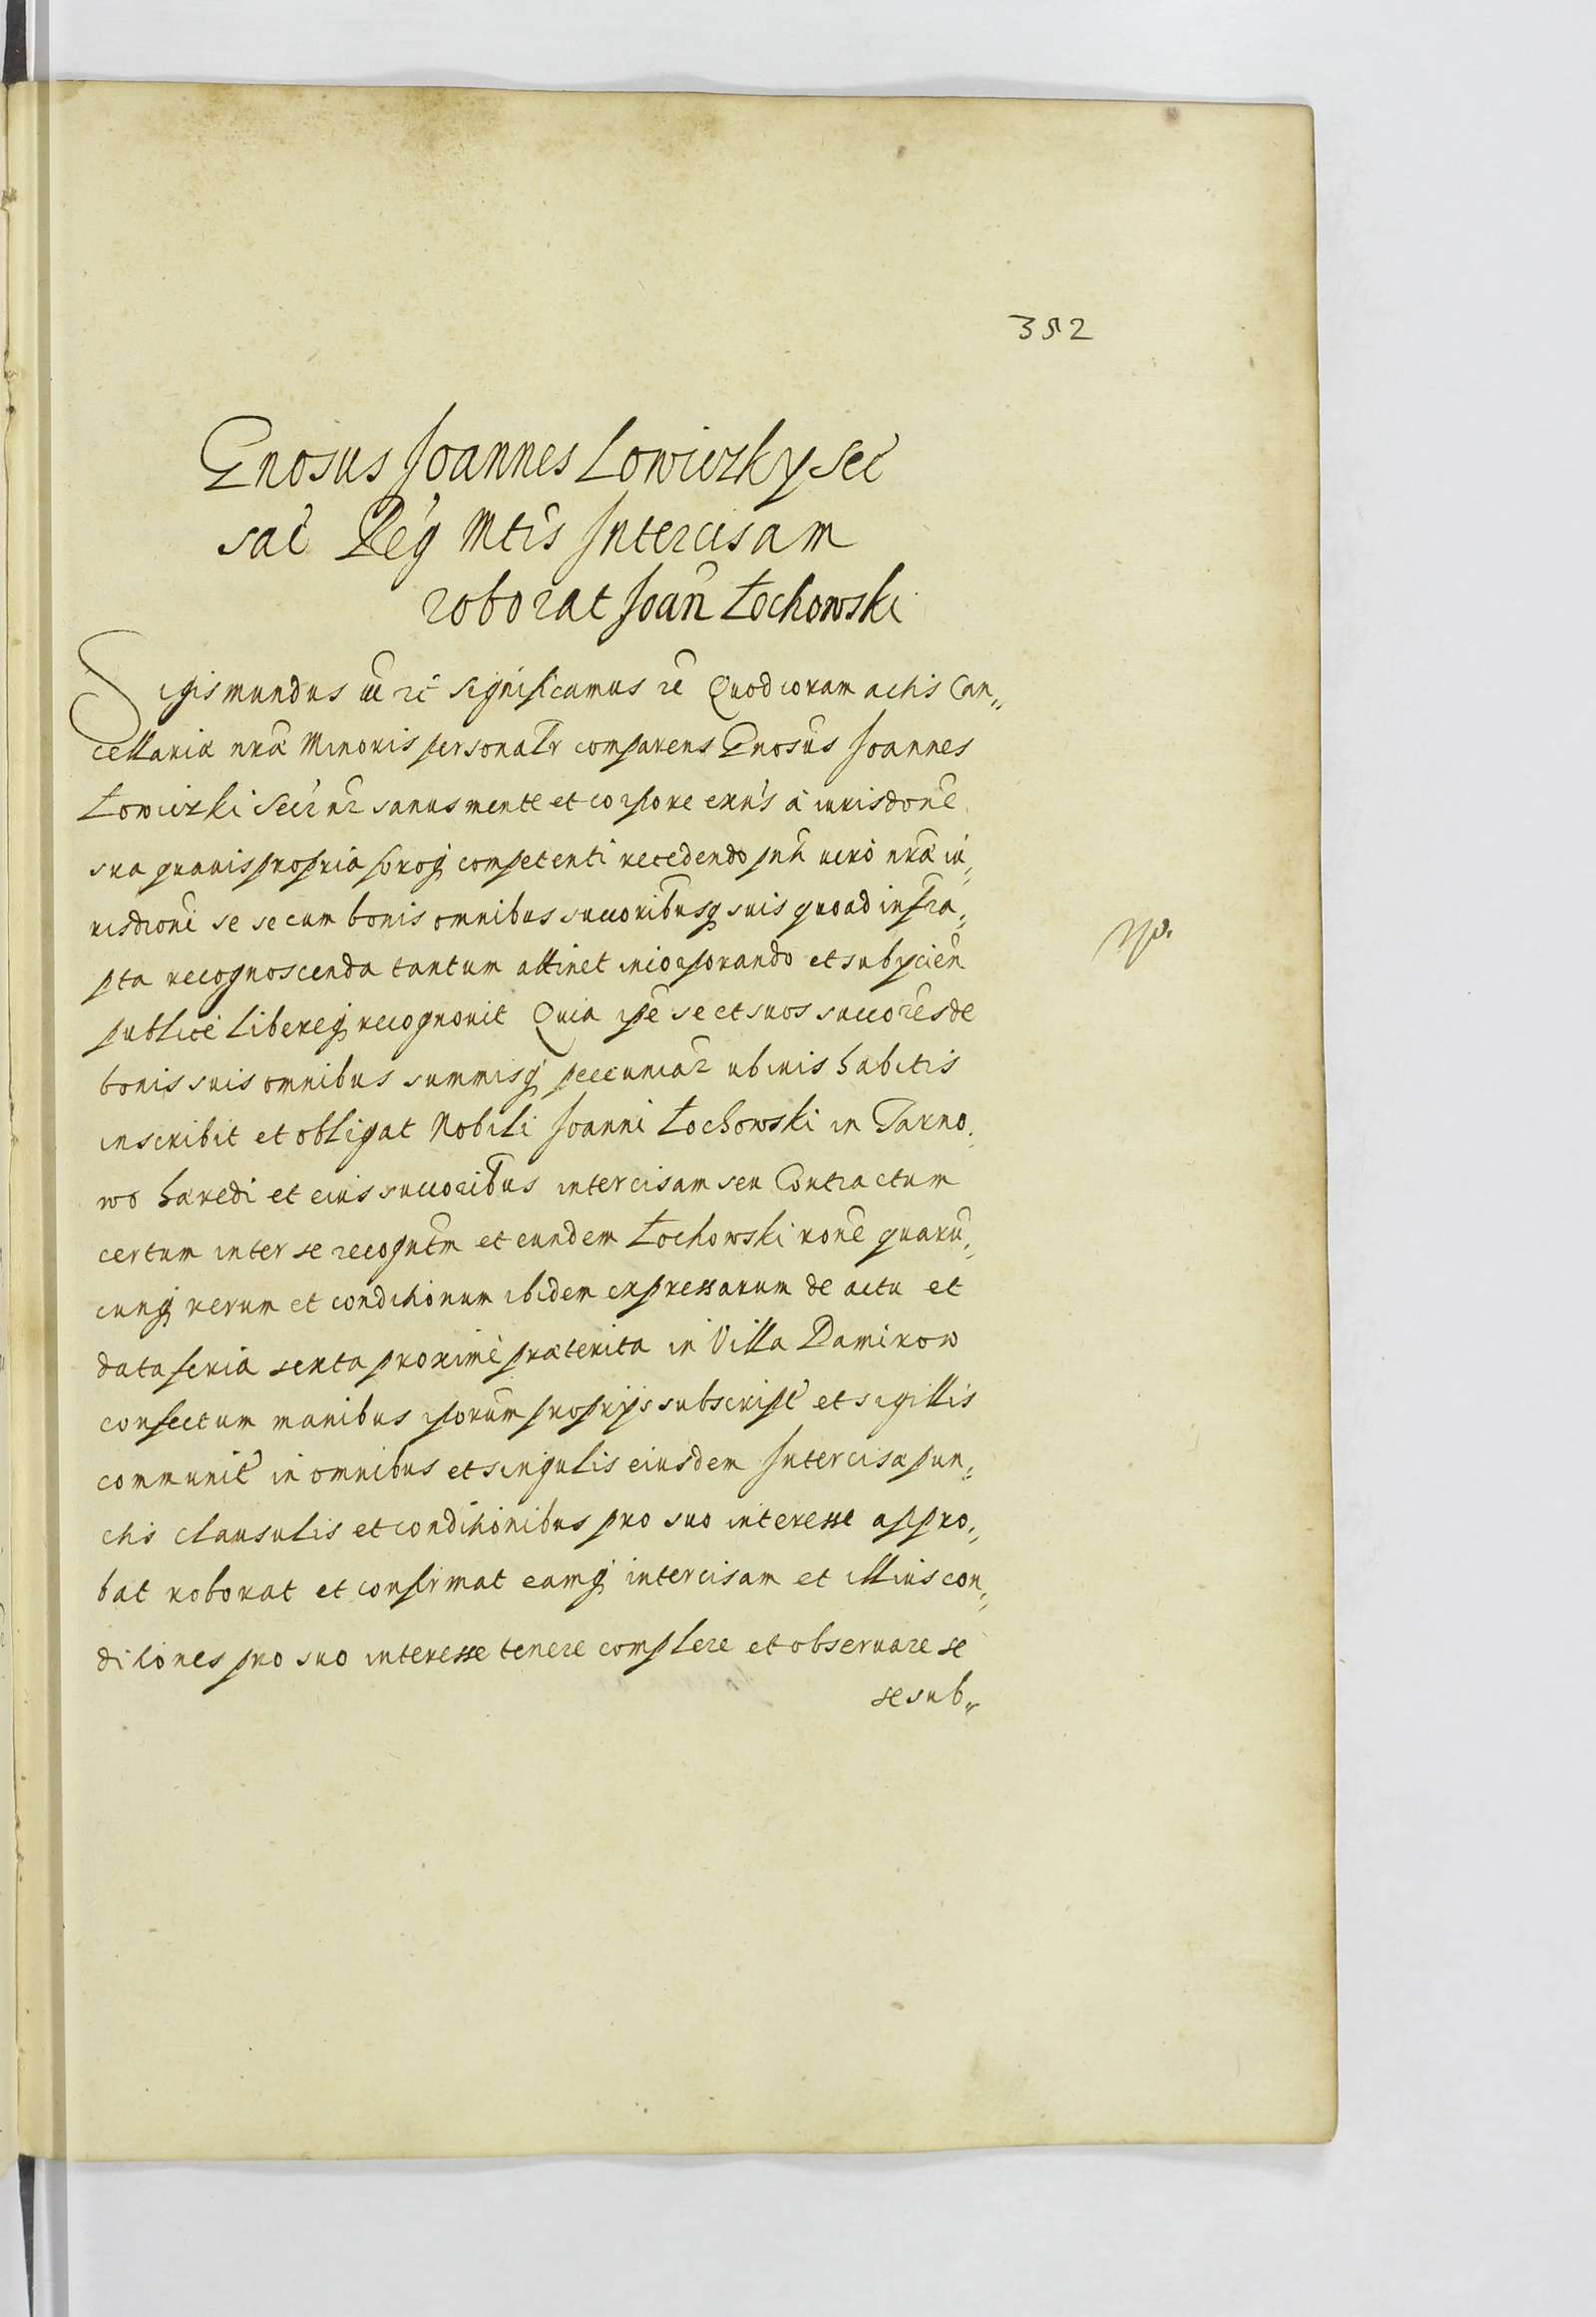 352
Gnosus Joannes Lowiczky Sec
sac Reg Mtis Intercisam
roborat Joan Łochowski
Sigismundus III rc Significamus rc Quod coram actis Can„
cellariæ nræ Minoris personalr comparens Gnosus Joannes
Łowiczki Secr nr sanus mente et corpore exns a iurisdone
sua quauis propria foroq competenti recedendo pnti uero nræ iu„
risdioni se se cum bonis omnibus succoribusq suis quoad infra„
pta recognoscenda tantum attinet incorporando et subycien
publice libereq recognouit Quia ipe se et suos succores de
bonis suis omnibus summisq peccuniar ubiuis habitis
inscribit et obligat Nobili Joanni Łochowski in Tarno„
wo hæredi et eius succoribus intercisam seu Contractum
certum inter se recognitm et eundem Łochowski rone quaru„
cunq rerum et conditionum ibidem expressarum de actu et
data feria sexta proxime præterita in Villa Damirow
confectum manibus iporum proprijs subscript et sigillis
communit in omnibus et singulis eiusdem Intercisæ pun„
ctis clausulis et conditionibus pro suo interesse appro„
bat roborat et confirmat eamq intercisam et illius con„
ditiones pro suo interesse tenere complere et obseruare se
se sub„